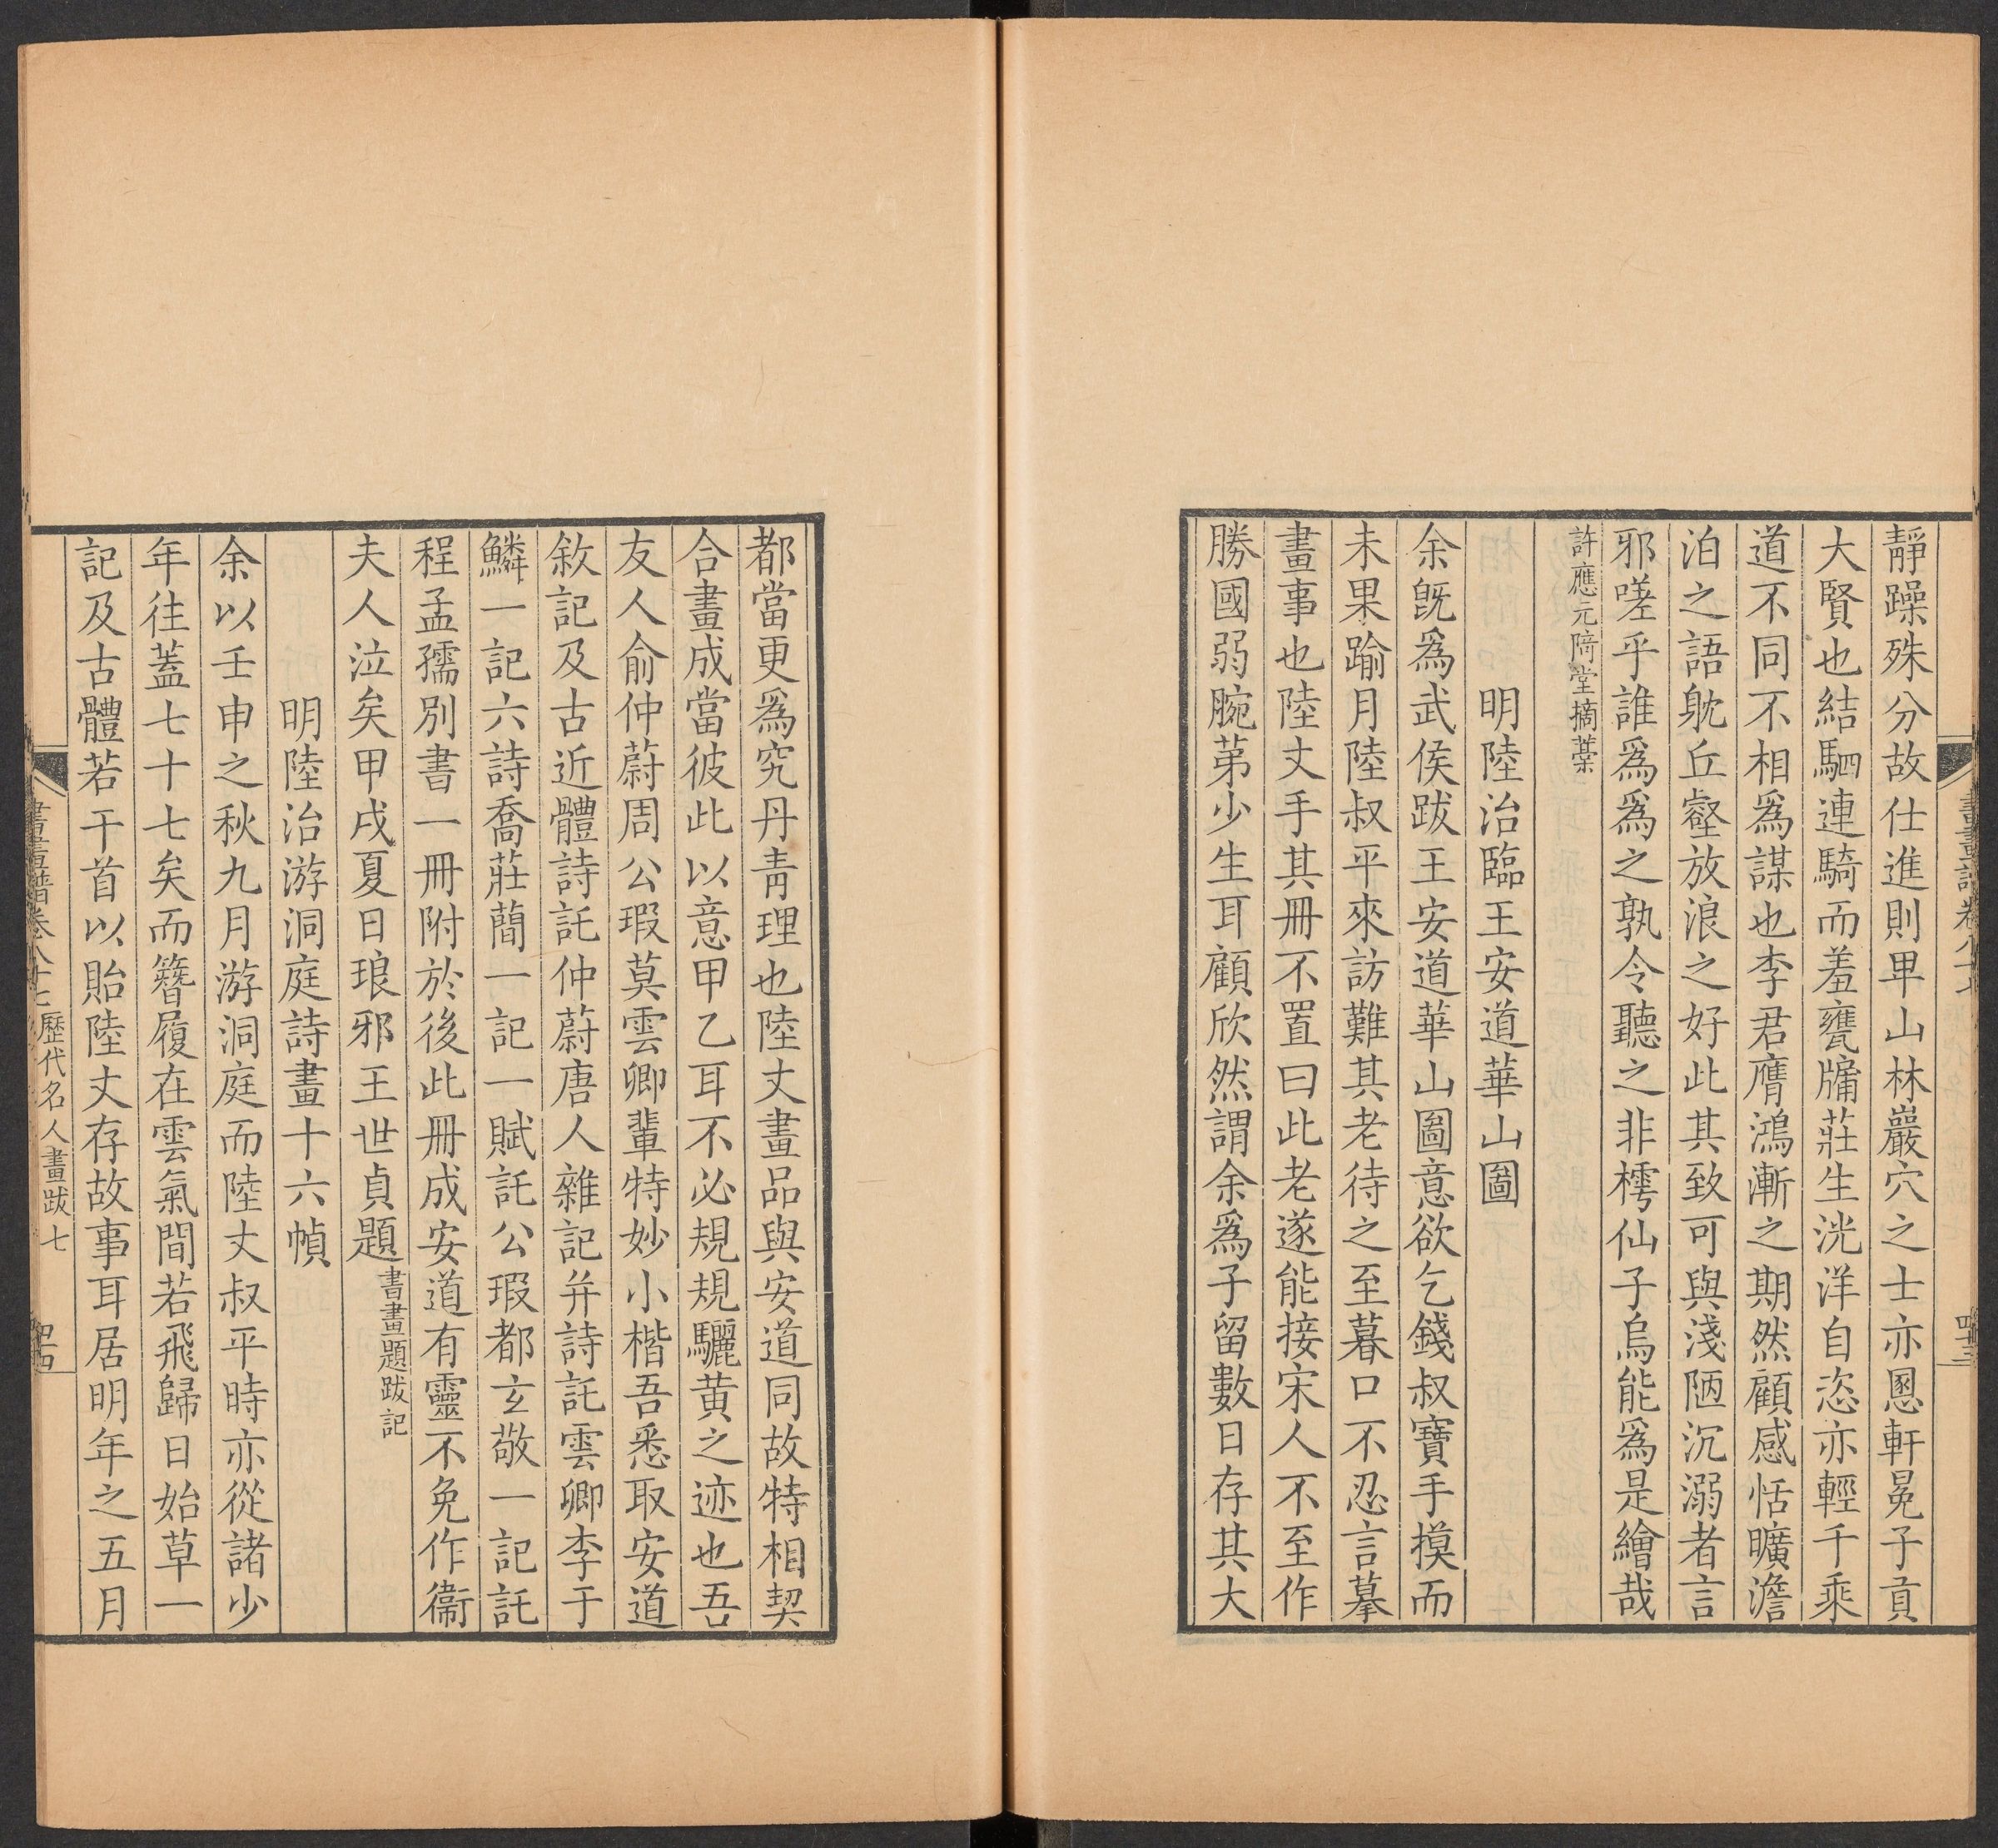 靜躁殊分故仕進則卑山林巖穴之士亦恩軒冕子貢
大賢也結駟連騎而羞甕牖莊生洸洋自恣亦輕千乘
道不同不相爲謀也李君膺鴻漸之期然顧感恬曠澹
泊之語躭丘壑放浪之好此其致可與淺陋沉溺者言
邪嗟乎誰爲爲之孰令聽之非樗仙子烏能爲是繪哉
許應元陭堂摘藁
明陸治臨王安道華山圖
余旣爲武侯跋王安道華山圖意欲乞錢叔寶手摸而
未果踰月陸叔平來訪難其老待之至暮口不忍言摹
畫事也陸丈手其冊不置曰此老遂能接宋人不至作
勝國弱腕苐少生耳顧欣然謂余爲子留數日存其大
都當更爲究丹靑理也陸丈畫品與安道同故特相契
合畫成當彼此以意甲乙耳不必規規驪黃之迹也吾
友人俞仲蔚周公瑕莫雲卿輩特妙小楷吾悉取安道
敘記及古近體詩託仲蔚唐人雜記并詩託雲卿李于
鱗一記六詩喬莊簡一記一賦託公瑕都玄敬一記託
程孟孺別書一冊附於後此冊成安道有靈不免作衞
夫人泣矣甲戌夏日琅邪王世貞題書畫題跋記
明陸治游洞庭詩畫十六幀
余以壬申之秋九月游洞庭而陸丈叔平時亦從諸少
年往蓋七十七矣而簪履在雲氣間若飛歸日始草一
記及古體若干首以貽陸丈存故事耳居明年之五月
書畫譜卷八十七 歷代名人畫跋七